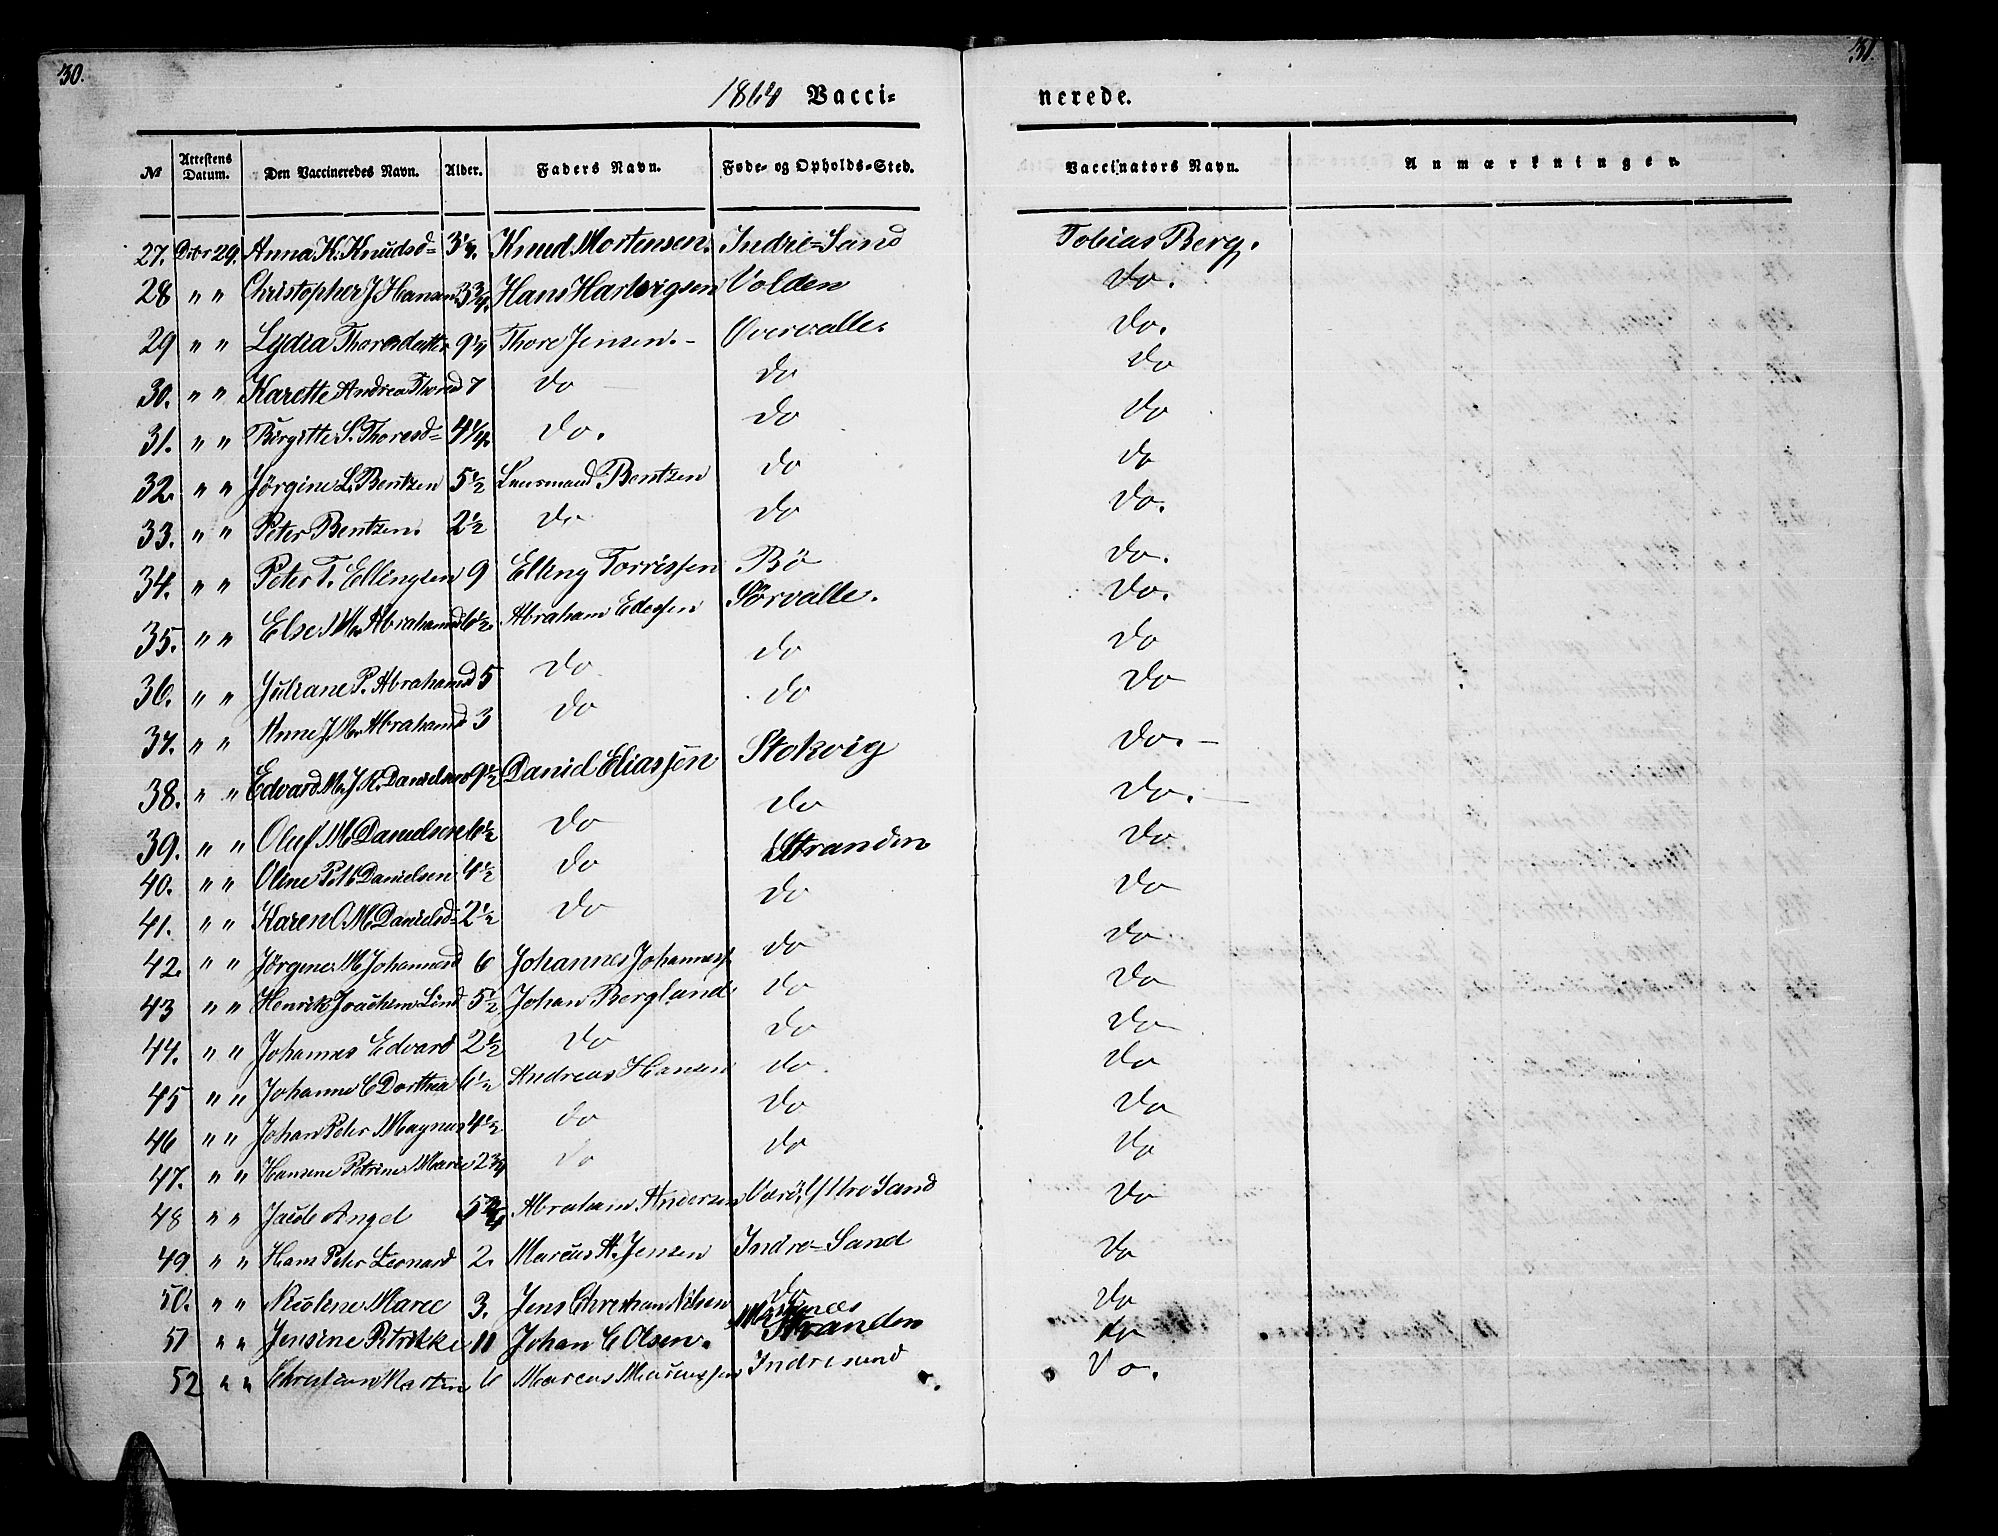 30.
31.
1864 Vacci-
nerede.
№ Attestens Datum. Den Vaccineredes Navn. Alder. Faders Navn. Føde- og Opholds-Sted. Vaccinators Navn. Anmærkninger.
27. 29. Anna K. Knudsd= 3 Knud Mortensen. Indre=Sand Tobias Berg.
28 " " Christopher J Hansen 3 3/4. Hans Hartvigsen Volden do.
29 " " Lydia Thoresdatter 9 Thore Jensen.- Overvalle. do.
30. " " Karette Andrea Thoresd 7 do do do
31. " " Birgitte S. Thoresd= 4 1/4. do. do do
32. " " Jørgine L. Bentzen 5 1/2 Lensmand Bentzen do do
33. " " Peter Bentzen. 2 1/2 do do do.
34. " " Peter T. Ellingsen 9 Elling Torrissen Bø do.
35. " " Else M. Abrahamsd 6 1/2. Abraham Edessen Sørvalle. do.
36. " " Juliane P. Abrahamsd 5 do do do
37. " " Anne J. M. Abrahamsd 3 do do do
38. " " Edvard M. J. R. Danielsen 9 1/2 Daniel Eliassen Stokvig do.-
39. " " Oluf M Danielsen 6 1/2 do do do.-
40. " " Oline Danielsen 4 1/2 do Stranden do
41. " " Karen O M Danielsd= 2 1/2 do do do
42. " " Jørgine M Johannesd 6 Johannes Johanness. do do
43 " " Henrik Joachim Lind 5 1/2 Johan Bergland do do
44. " " Johannes Edvard 2 1/2 do do do
45 " " Johanne C Dorthea 6 1/2 Andreas Hansen do. do
46 " " Johan Peter Magnus 4 1/2 do do do
47. " " Hansine Petrine Marie 2 3/4 do do do
48 " " Jacob Angel 5 3/4 Abraham Andersen Værö, Sand do
49 " " Hans Peter Leonard 2. Marcus A. Jensen Indre=Sand do
50. " " Nicoline Maree 3. Jens Christian Nilsen do do
51 " " Jensine Petrikke 11 Johan C Olsen. Stranden do
52 " " Christian Marten 6 Marcus Indresand do.